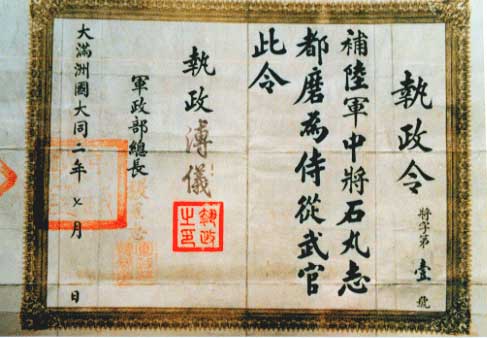 執政令
將字第 壹 號
補陸軍中將石丸志
都磨為侍從武官
此令
執政 溥儀
執政之印
軍政部總長
大滿洲國大同二年 七月 日